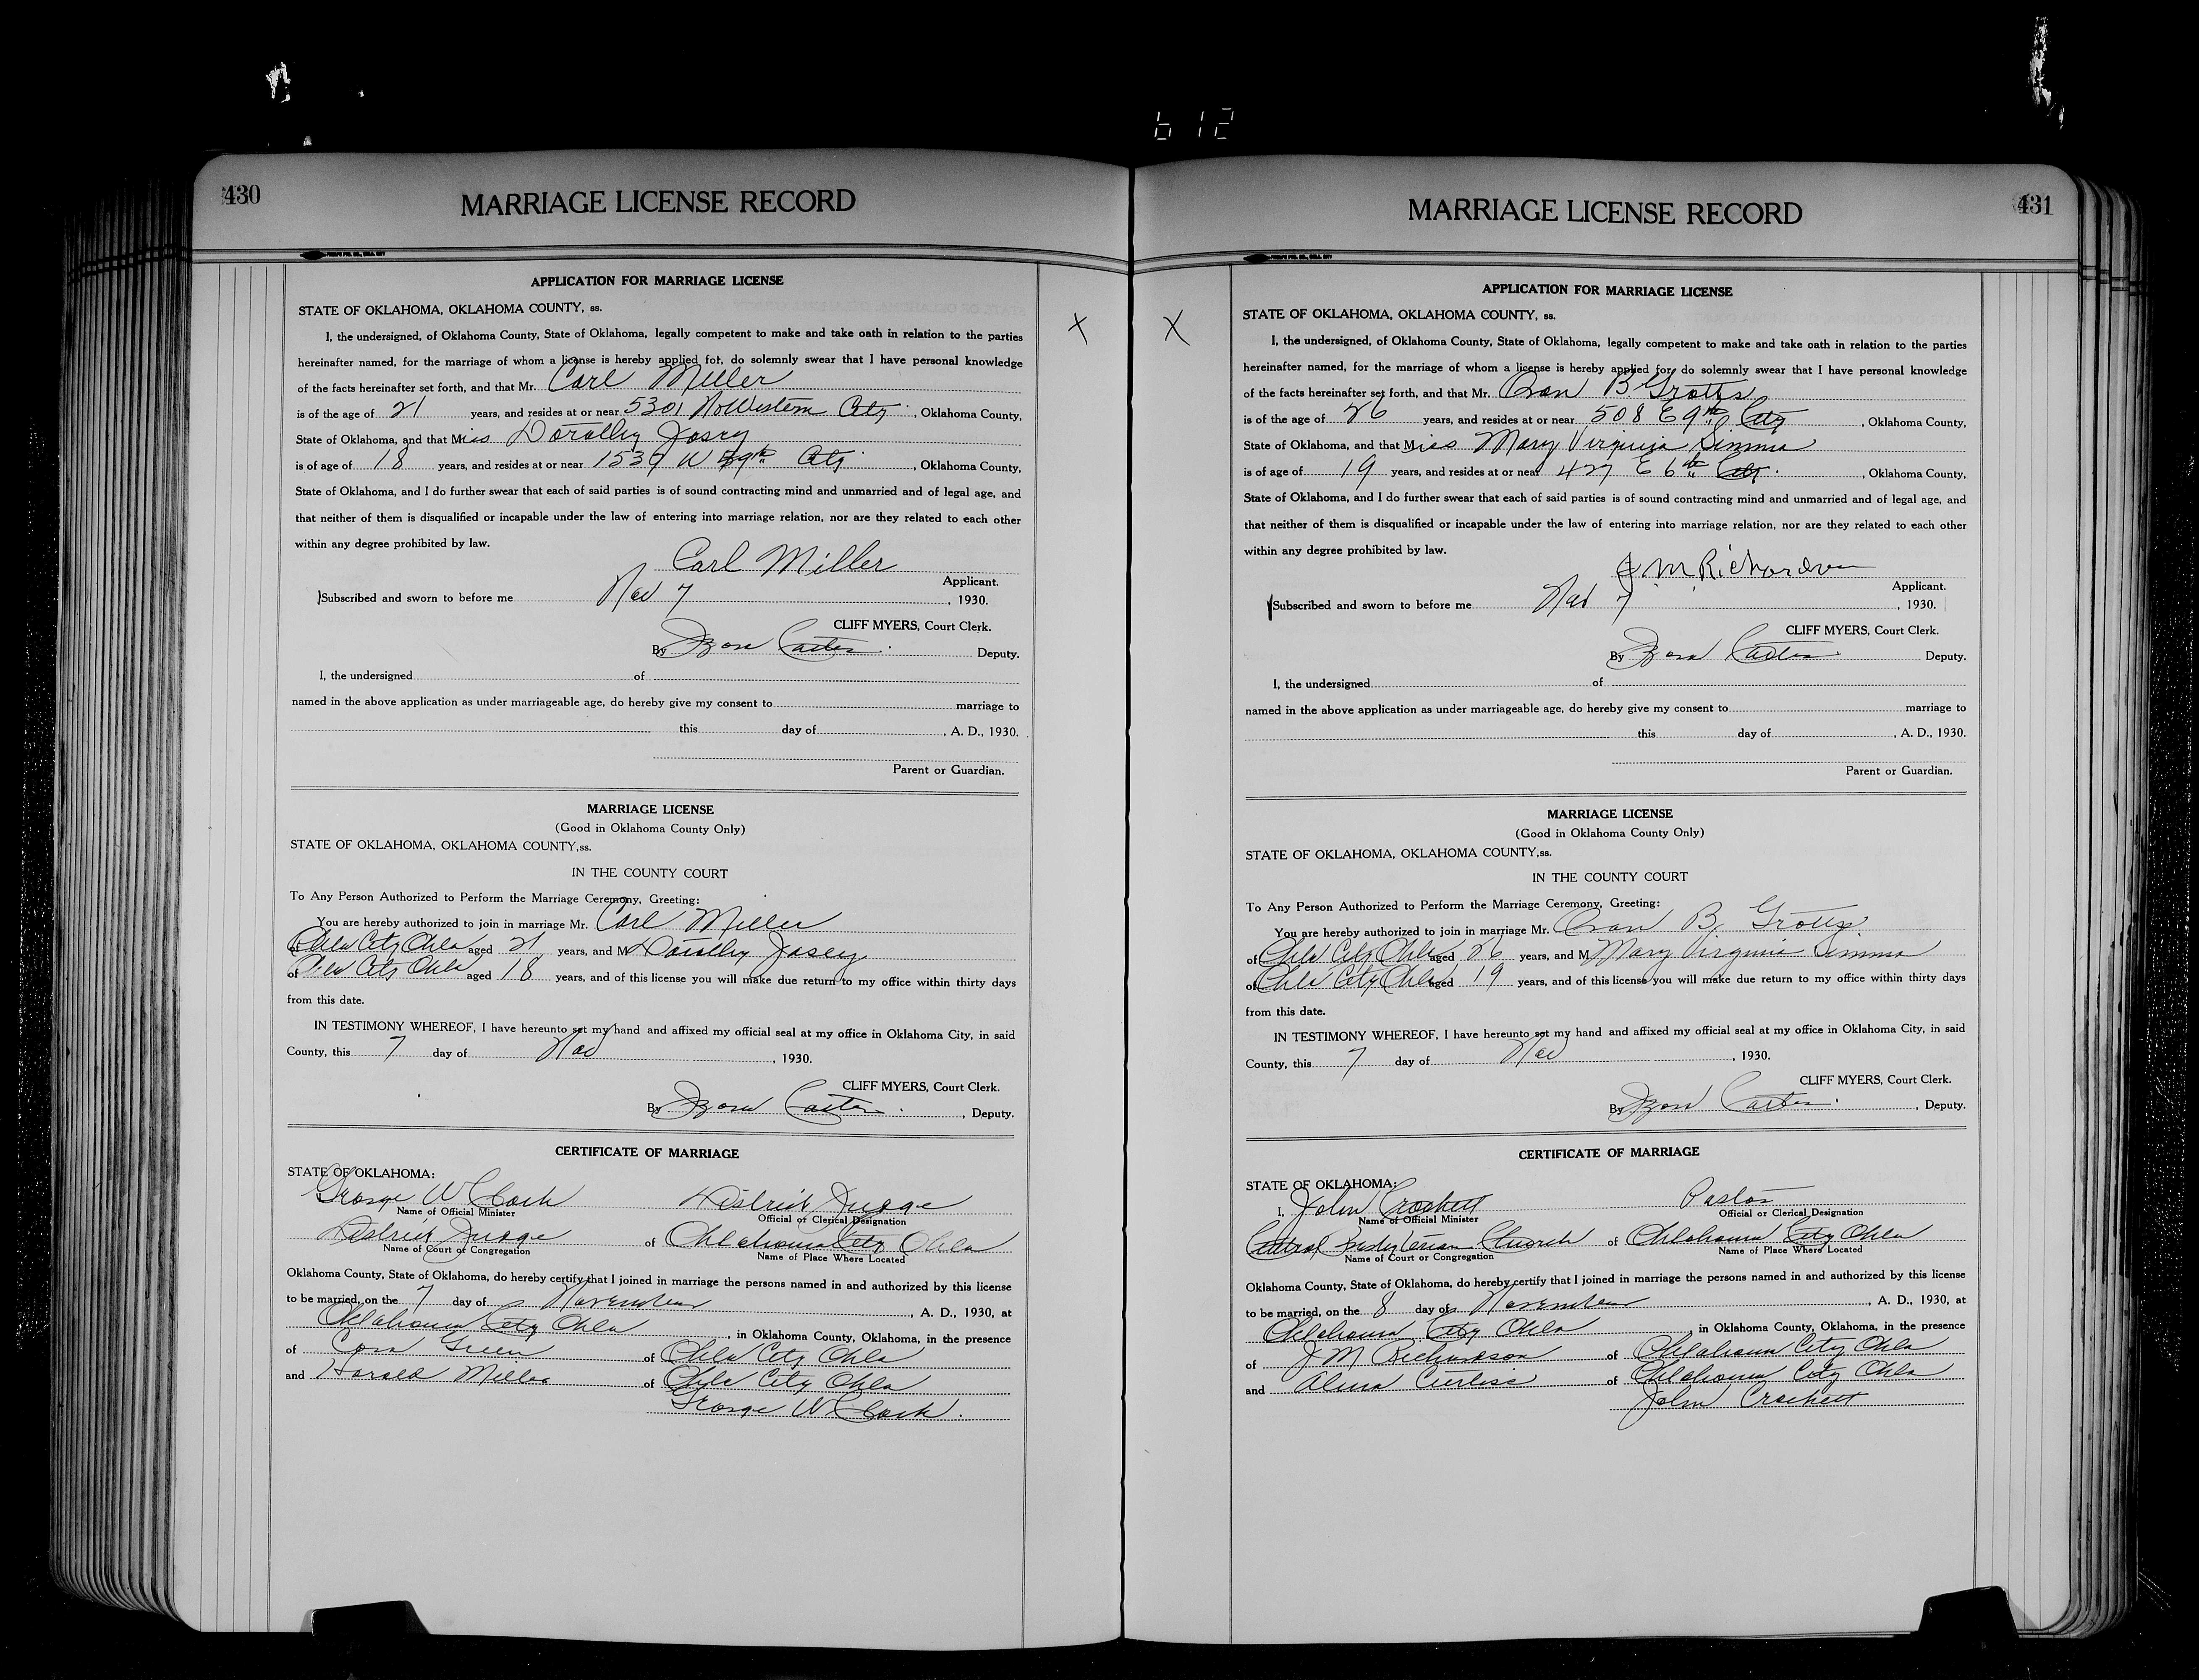 612
430
MARRIAGE LICENSE RECORD
APPLICATION FOR MARRIAGE LICENSE
STATE OF OKLAHOMA, OKLAHOMA COUNTY, ss.
I, the undersigned, of Oklahoma County, State of Oklahoma, legally competent to make and take oath in relation to the parties
hereinafter named, for the marriage of whom a license is hereby applied for, do solemnly swear that I have personal knowledge
of the facts hereinafter set forth, and that Mr. Carl Miller
is of the age of 21 years, and resides at or near 5301 No Western City, Oklahoma County,
State of Oklahoma, and that Miss Dorothy Josey
is of age of 18 years, and resides at or near 1539 W 39th City, Oklahoma County,
State of Oklahoma, and I do further swear that each of said parties is of sound contracting mind and unmarried and of legal age, and
that neither of them is disqualified or incapable under the law of entering into marriage relation, nor are they related to each other
within any degree prohibited by law.
Carl Miller
Applicant.
Subscribed and sworn to before me Nov 7, 1930.
CLIFF MYERS, Court Clerk.
By Carter Deputy.
I, the undersigned of
named in the above application as under marriageable age, do hereby give my consent to marriage to
this day of , A. D., 1930.
Parent or Guardian.
MARRIAGE LICENSE
(Good in Oklahoma County Only)
STATE OF OKLAHOMA, OKLAHOMA COUNTY, ss.
IN THE COUNTY COURT
To Any Person Authorized to Perform the Marriage Ceremony, Greeting:
You are hereby authorized to join in marriage Mr. Carl Miller
of Okla City Okla aged 21 years, and M Dorothy Josey
of Okla City Okla aged 18 years, and of this license you will make due return to my office within thirty days
from this date.
IN TESTIMONY WHEREOF, I have hereunto set my hand and affixed my official seal at my office in Oklahoma City, in said
County, this 7 day of Nov, 1930.
CLIFF MYERS, Court Clerk.
By Carter, Deputy.
CERTIFICATE OF MARRIAGE
STATE OF OKLAHOMA:
George W Clark District Judge
Name of Official Minister Official or Clerical Designation
District Judge of Oklahoma City Okla
Name of Court or Congregation Name of Place Where Located
Oklahoma County, State of Oklahoma, do hereby certify that I joined in marriage the persons named in and authorized by this license
to be married, on the 7 day of November, A. D., 1930, at
Oklahoma City Okla, in Oklahoma County, Oklahoma, in the presence
of Cora Green of Okla City Okla
and Harold Miller of Okla City Okla
George W Clark.
431
MARRIAGE LICENSE RECORD
X X
APPLICATION FOR MARRIAGE LICENSE
STATE OF OKLAHOMA, OKLAHOMA COUNTY, ss.
I, the undersigned, of Oklahoma County, State of Oklahoma, legally competent to make and take oath in relation to the parties
hereinafter named, for the marriage of whom a license is hereby applied for, do solemnly swear that I have personal knowledge
of the facts hereinafter set forth, and that Mr. Oran B. Grotts
is of the age of 26 years, and resides at or near 508 E 9th City, Oklahoma County,
State of Oklahoma, and that Miss Mary Virginia Simms
is of age of 19 years, and resides at or near 427 E 6th City, Oklahoma County,
State of Oklahoma, and I do further swear that each of said parties is of sound contracting mind and unmarried and of legal age, and
that neither of them is disqualified or incapable under the law of entering into marriage relation, nor are they related to each other
within any degree prohibited by law.
J M Richardson
Applicant.
Subscribed and sworn to before me Nov 7, 1930.
CLIFF MYERS, Court Clerk.
By Carter Deputy.
I, the undersigned of
named in the above application as under marriageable age, do hereby give my consent to marriage to
this day of , A. D., 1930.
Parent or Guardian.
MARRIAGE LICENSE
(Good in Oklahoma County Only)
STATE OF OKLAHOMA, OKLAHOMA COUNTY, ss.
IN THE COUNTY COURT
To Any Person Authorized to Perform the Marriage Ceremony, Greeting:
You are hereby authorized to join in marriage Mr. Oran B Grotts
of Okla City Okla aged 26 years, and M Mary Virginia Simms
of Okla City Okla aged 19 years, and of this license you will make due return to my office within thirty days
from this date.
IN TESTIMONY WHEREOF, I have hereunto set my hand and affixed my official seal at my office in Oklahoma City, in said
County, this 7 day of Nov, 1930.
CLIFF MYERS, Court Clerk.
By Carter, Deputy.
CERTIFICATE OF MARRIAGE
STATE OF OKLAHOMA:
I, John Crockett Pastor
Name of Official Minister Official or Clerical Designation
Central Presbyterian Church of Oklahoma City Okla
Name of Court or Congregation Name of Place Where Located
Oklahoma County, State of Oklahoma, do hereby certify that I joined in marriage the persons named in and authorized by this license
to be married, on the 8 day of November, A. D., 1930, at
Oklahoma City Okla in Oklahoma County, Oklahoma, in the presence
of J M Richardson of Oklahoma City Okla
and Alma of Oklahoma City Okla
John Crockett